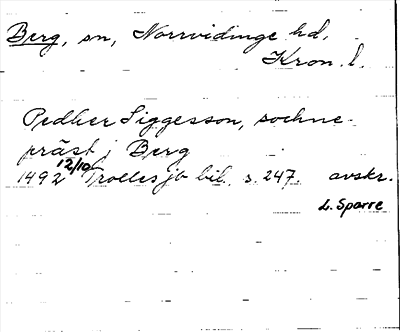 Berg, sn, Norrvidinge hd,
Kron. l.
Pedher Siggesson, sochne-
präst j Berg
1492 12/10 Trolles jb bil. s. 247. avskr.
L. Sparre